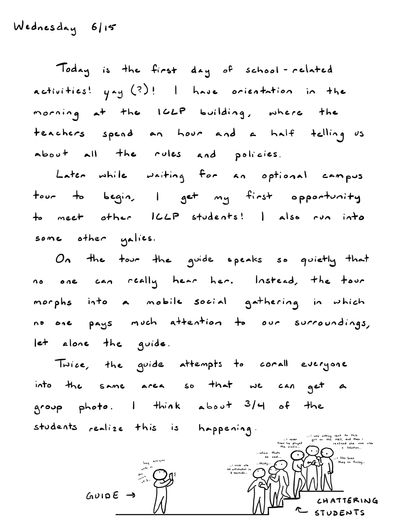 Wednesday 6/15
Today is the first day of school-related
activities! yay (?)! I have orientation in the
morning at the ICLP building, where the
teachers spend an hour and a half telling us
about all the rules and policies.
Later while waiting for an optional campus
tour to begin, I get my first opportunity
to meet other ICLP students! I also run into
some other yalies.
On the tour the guide speaks so quietly that
no one can really hear her. Instead, the tour
morphs into a mobile social gathering in which
no one pays much attention to our surroundings,
let alone the guide.
Twice, the guide attempts to corall everyone
into the same area so that we can get a
group photo. I think about 3/4 of the
students realize this is happening.
GUIDE →
← CHATTERING
STUDENTS